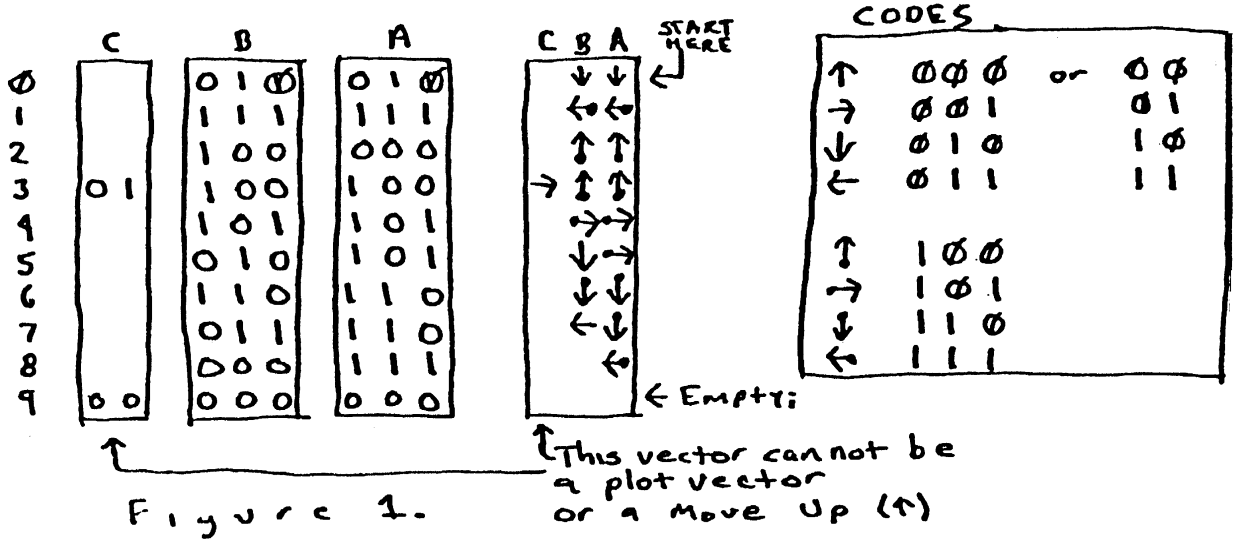 C B A C B A START HERE
Ø 0 1 Ø 0 1 Ø ↓ ↓ ←
1 1 1 1 1 1 1 ← ←
2 1 0 0 0 0 0 ↑ ↑
3 0 1 1 0 0 1 0 0 → ↑ ↑
4 1 0 1 1 0 1 → →
5 0 1 0 1 0 1 ↓ →
6 1 1 0 1 1 0 ↓ ↓
7 0 1 1 1 1 0 ← ↓
8 0 0 0 1 1 1 ←
9 0 0 0 0 0 0 0 0 ← Empty;
This vector cannot be
a plot vector
or a Move Up (↑)
Figure 1.
CODES
↑ Ø Ø Ø or Ø Ø
→ Ø Ø 1 Ø 1
↓ Ø 1 Ø 1 Ø
← Ø 1 1 1 1
↑ 1 Ø Ø
→ 1 Ø 1
↓ 1 1 Ø
← 1 1 1